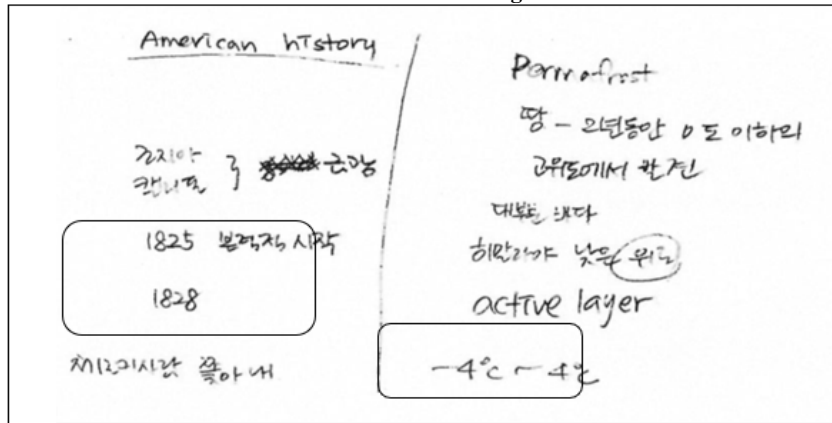 American history
조지아
캘니포 } 금광
1825 본격적 시작
1828
체로키사람 쫓아내
Permafrost
땅 - 2년동안 0도 이하의
고위도에서 발견
대부분
히말라야 낮은 위도
active layer
-4°C ~ 4°C